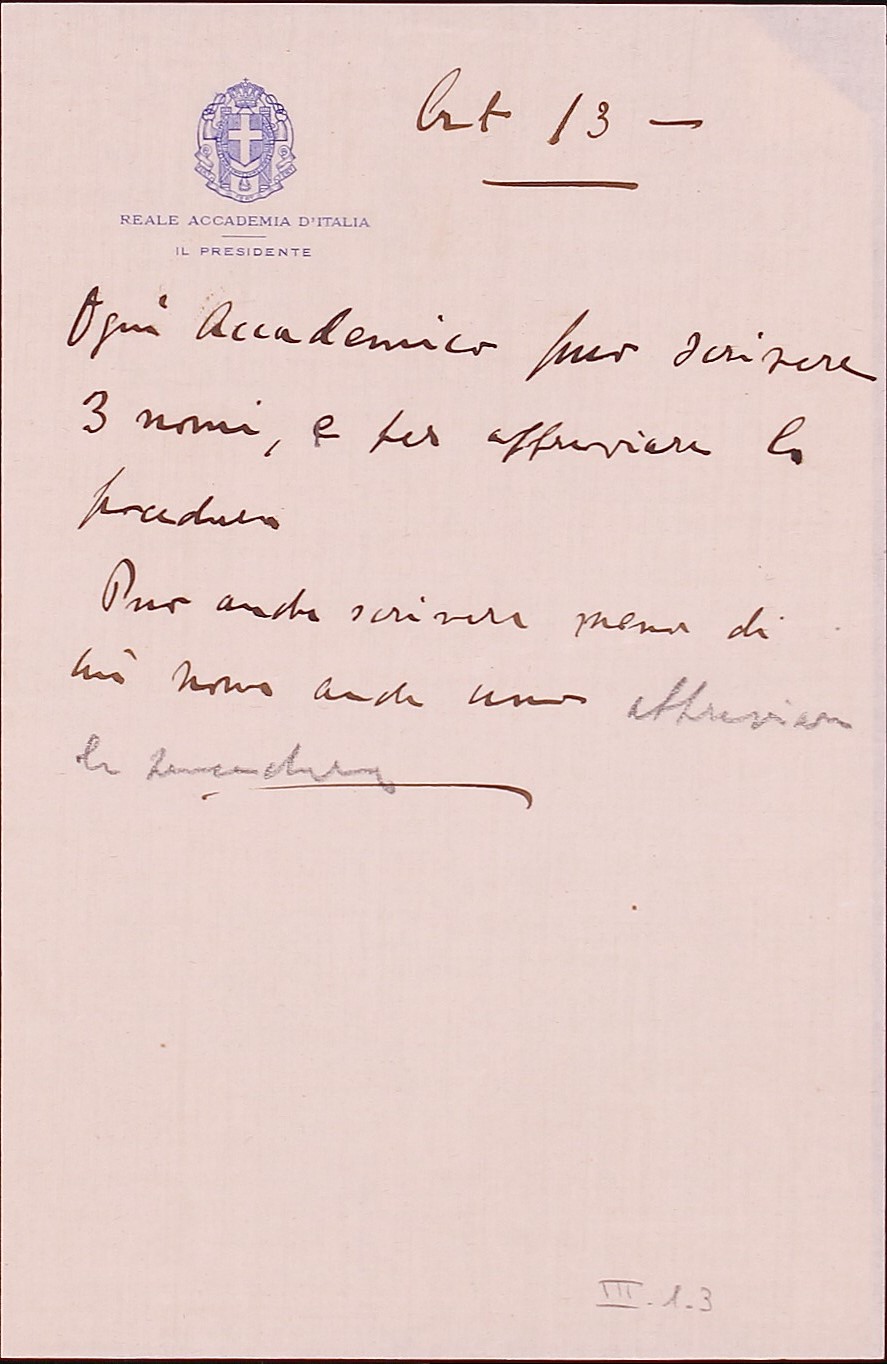 Art 13 —
REALE ACCADEMIA D'ITALIA
IL PRESIDENTE
Ogni Accademico può scrivere
3 nomi, e per abbreviare la
procedura
Può anche scrivere meno di
nomi anche uno abbreviare
la procedura
III.1.3